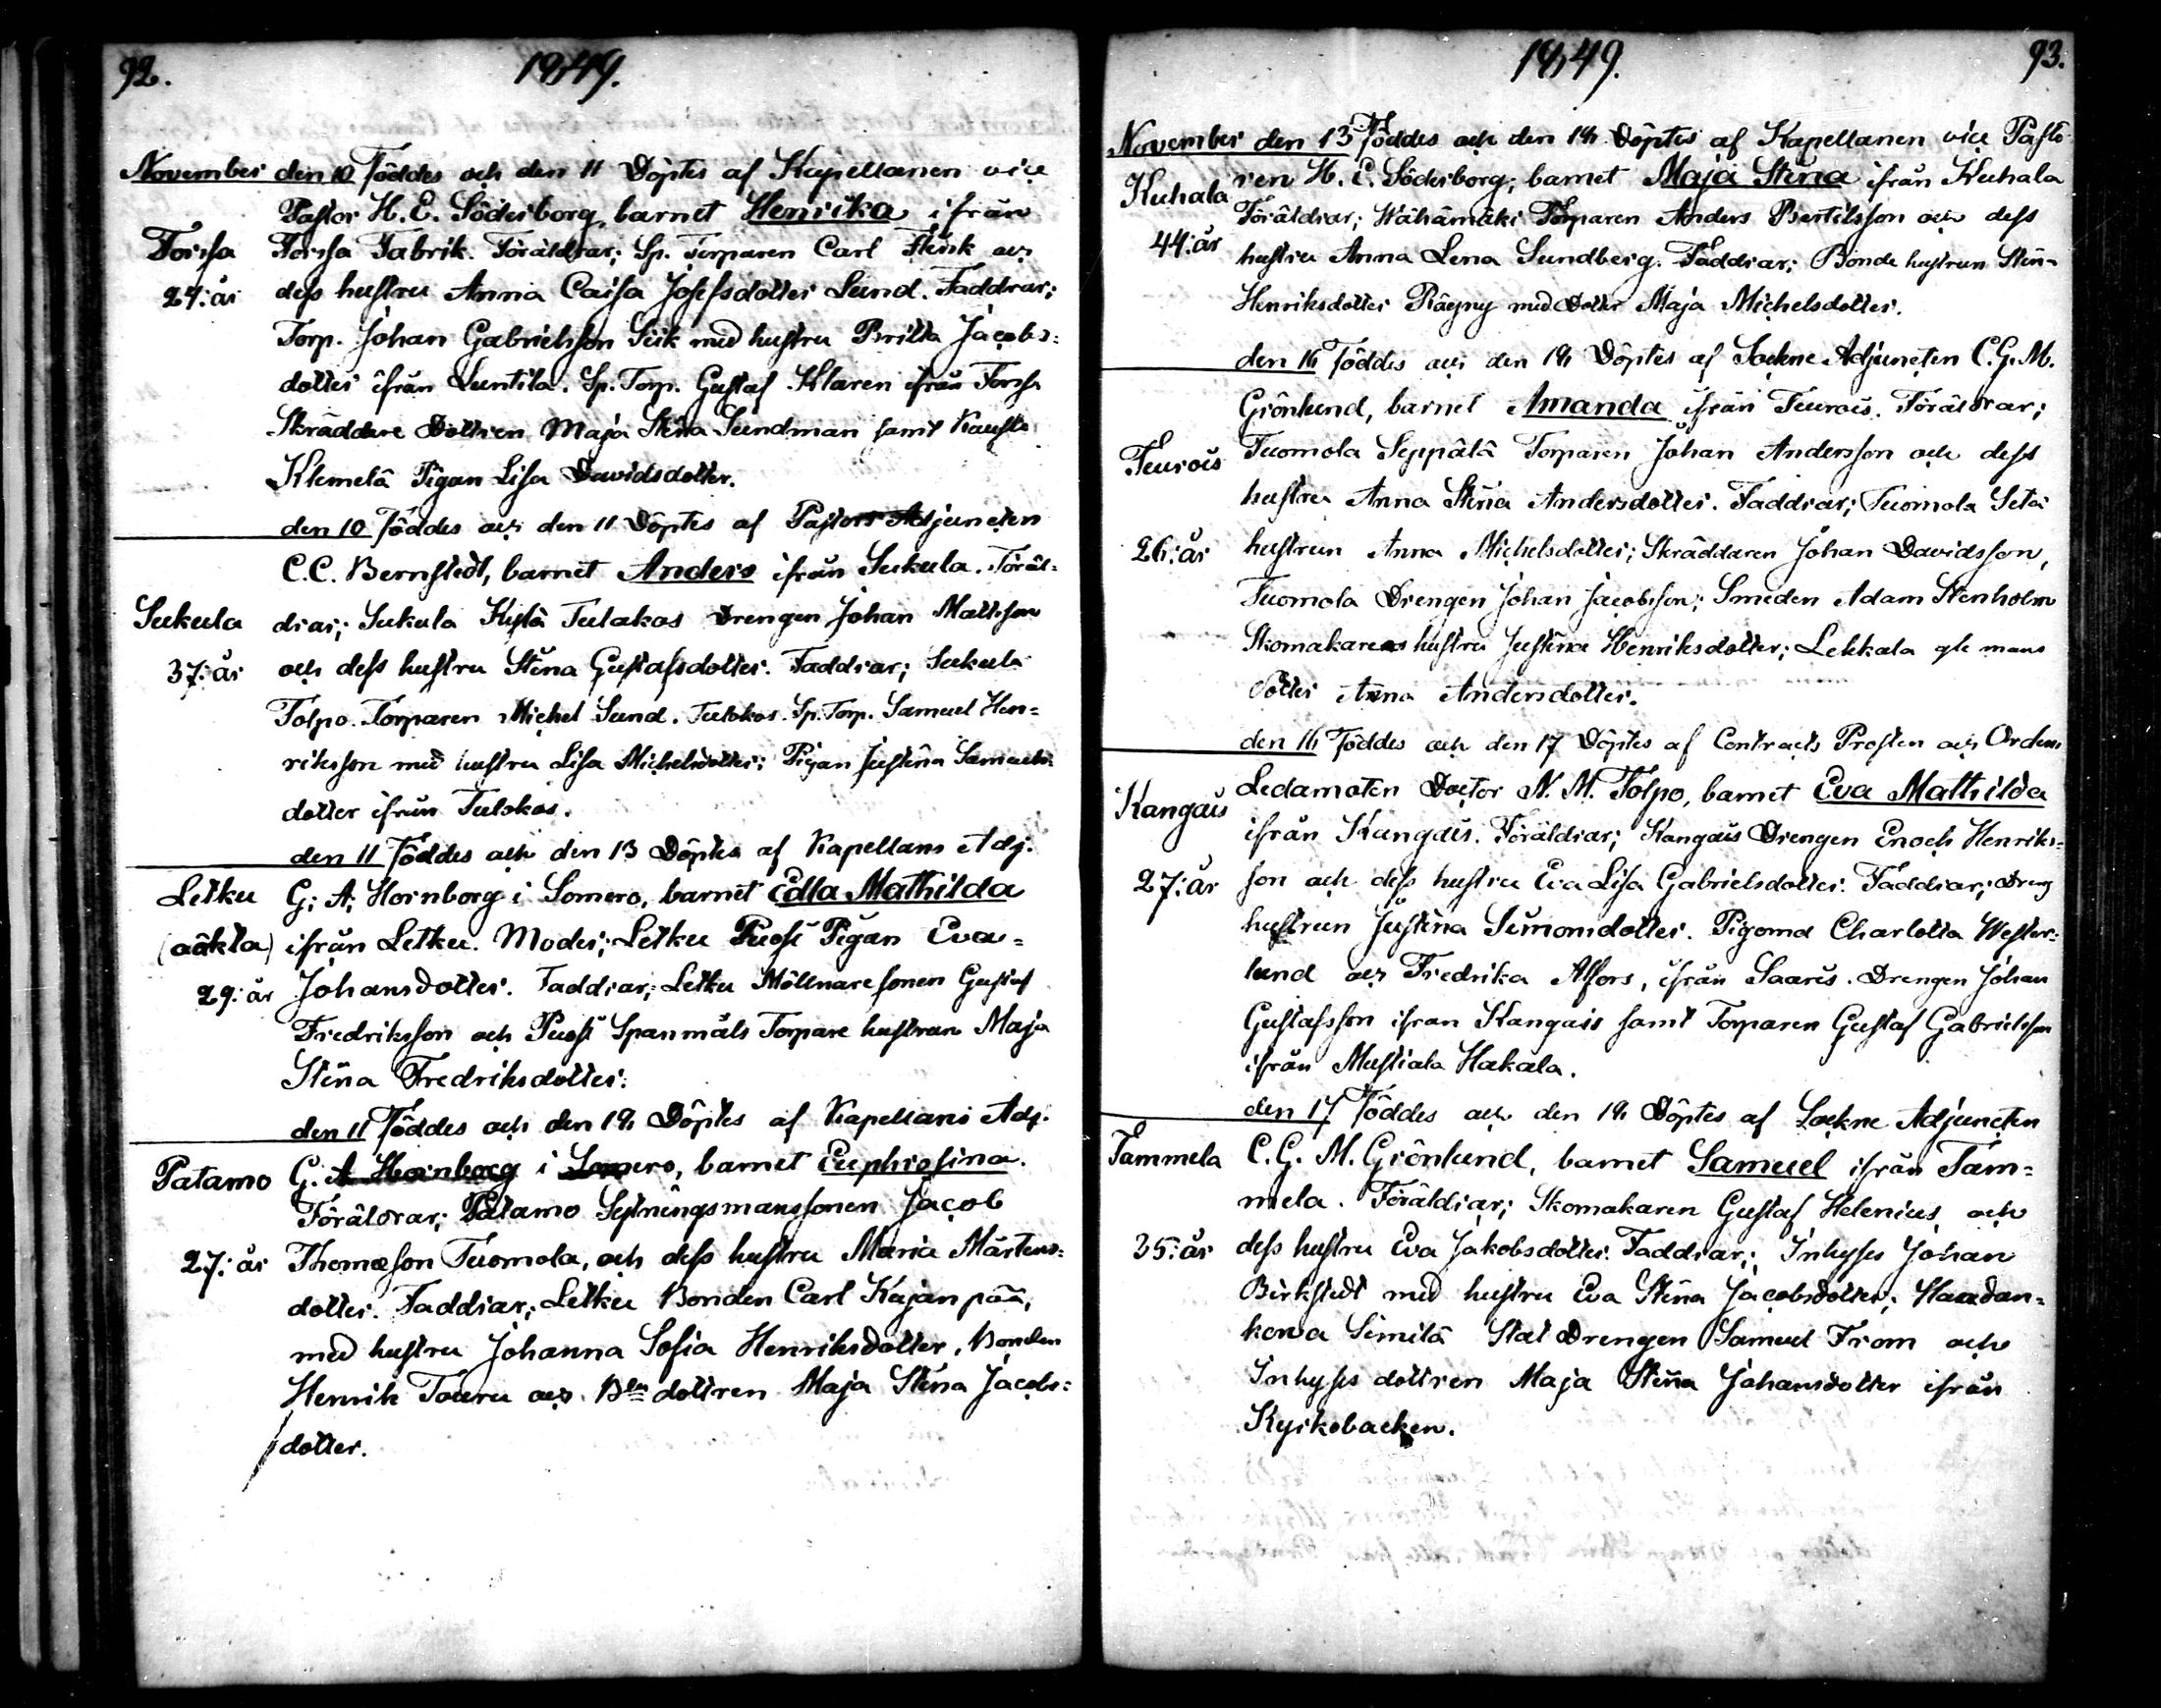 92.
1849.
November den 10 Föddes och den 11 Döptes af Kapellanen vice
Pastor H. E. Söderborg, barnet Henrika ifrån
Forssa Forssa Fabrik. Föräldrar; Sp. Torparen Carl och
24: år dess hustru Anna Caisa Josefsdotter Lund. Faddrar;
Torp. Johan Gabrielsson Siik med hustru Britta Jacobs=
dotter ifrån Luntila. Sp. Torp. Gustaf Klaren ifrån Forssa
Skräddare Dottren Maja Stina Sundman samt Kausti
Klemelä Pigan Lisa Davidsdotter.
den 10 Föddes och den 11 Döptes af Pastors Adjuncten
C. C. Bernstedt, barnet Anders ifrån Sukula. Föräl=
Sukula drar; Sukula Kystä Tulakas Drengen Johan Mattsson
37: år och dess hustru Stina Gustafsdotter. Faddrar; Sukula
Tolpo. Torparen Michel Sund. Tulokas. Sp. Torp. Samuel Hen=
riksson med hustru Lisa Michelsdotter; Pigan Justina Samuels=
dotter ifrån Tulokas.
den 11 Föddes och den 13 Döptes af Kapellans Adj.
Letku G. A. Hornborg i Somero, barnet Edla Mathilda
(oäkta) ifrån Letku. Moder; Letku Puosi Pigan Eva=
29: år Johansdotter. Faddrar; Letku Möllnare sonen Gustaf
Fredriksson och Puosi Spanmåls Torpare hustrun Maja
Stina Fredriksdotter.
den 11 Föddes och den 18 Döptes af Kapellans Adj.
Patamo G. A Hornborg i Somero, barnet Euphrosina.
Föräldrar; Patamo Sextningsmanssonen Jacob
27: år Thomasson Tuomola, och dess hustru Maria Mårtens=
dotter. Faddrar; Letku Bonden Carl Kajanpää,
med hustru Johanna Sofia Henriksdotter, Bonden
Henrik Touru och Bdn dottren Maja Stina Jacobs=
dotter.
1849.
93.
November den 13 Föddes och den 18 Döptes af Kapellanen vice Pasto
Kuhala ren H. E. Söderborg; barnet Maja Stina ifrån Kuhala
Föräldrar; Wähämäki Torparen Anders Bertilsson och dess
44: år hustru Anna Lena Sundberg. Faddrar; Bonde hustrun Stina
Henriksdotter Räyny med Dotter Maja Michelsdotter.
den 16 Föddes och den 18 Döptes af Sockne Adjuncten C. G. M.
Grönlund, barnet Amanda ifrån Teurois. Föräldrar;
Teurois Tuomola Seppälä Torparen Johan Andersson och dess
hustru Anna Stina Andersdotter. Faddrar; Tuomola Setä
26: år hustrun Anna Michelsdotter; Skräddaren Johan Davidsson,
Tuomola Drengen Johan Jacobsson; Smeden Adam Stenholm
Skomakarens hustru Justina Henriksdotter; Lekkala glemans
dotter Anna Andersdotter.
den 16 Föddes och den 17 Döptes af Contracts Prosten och Ordens
Ledamoten Doctor N. M. Tolpo, barnet Eva Mathilda
Kangais ifrån Kangais. Föräldrar; Kangais Drengen Enoch Henriks=
27: år son och dess hustru Eva Lisa Gabrielsdotter. Faddrar; Dreng
hustrun Justina Simonsdotter. Pigorna Charlotta Wester=
lund och Fredrika Alfors, ifrån Saaris. Drengen Johan
Gustafsson ifrån Kangais samt Torparen Gustaf Gabrielsson
ifrån Mustiala Hakala.
den 17 Föddes och den 18 Döptes af Sockne Adjuncten
Tammela C. G. M. Grönlund, barnet Samuel ifrån Tam=
mela. Föräldrar; Skomakaren Gustaf Helenius och
35: år dess hustru Eva Jakobsdotter. Faddrar; Inhyses Johan
Birkstedt med hustru Eva Stina Jacobsdotter; Haudan=
korva Simila Stat Drengen Samuel From och
Inhyses dottren Maja Stina Johansdotter ifrån
Kyrkobacken.